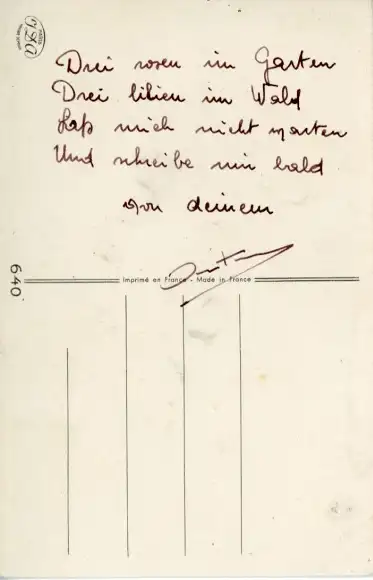 Drei rosen im Garten
Drei lilien im Wald
Laß mich nicht warten
Und schreibe mir bald
von deinem
Imprimé en France - Made in France
640